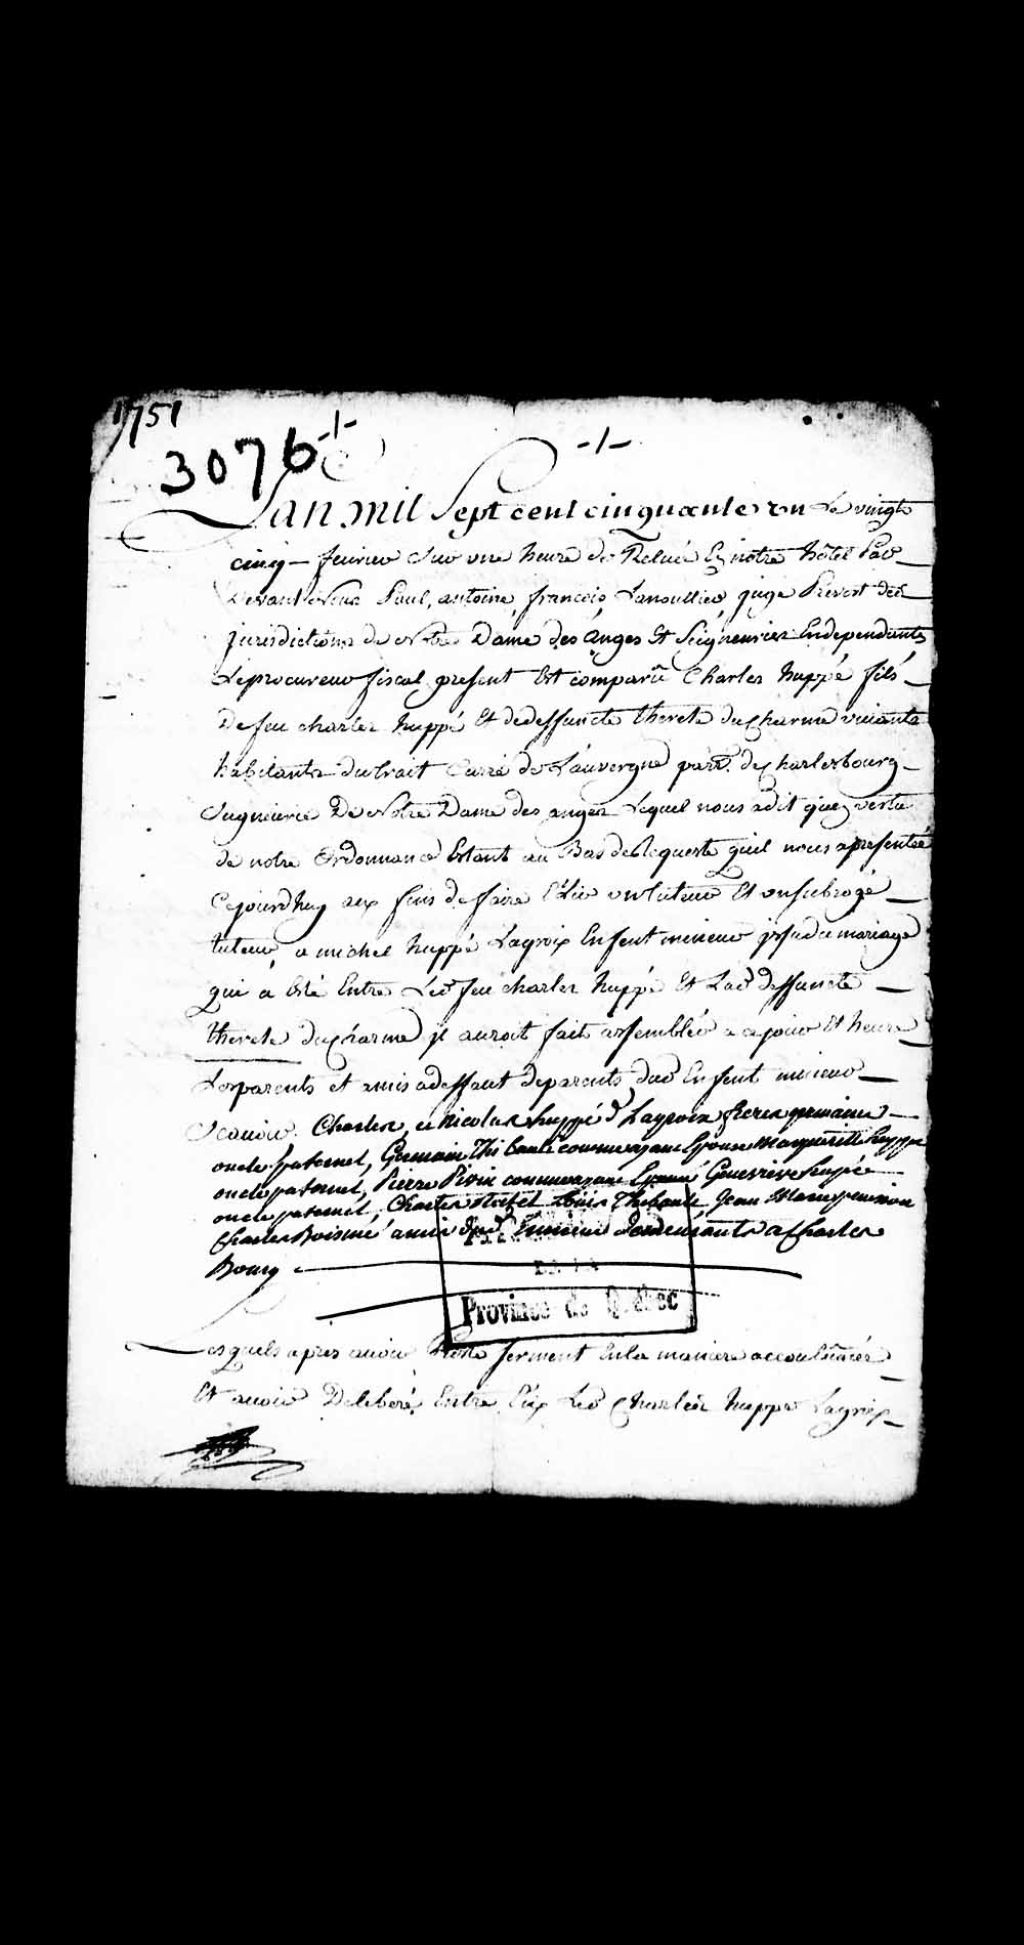 1751
3076 -/- -/-
Lan mil Sept cent cinquante un Le vingt
cinq — feurier Sur une heure de Relué En notre hôtel Par —
Devant Nous Paul, antoine, françois Lanoullier, juge Prevost des
jurisdictions de Notre Dame des Anges Et Seigneuries Endependantes
Le procureur fiscal present Est comparû Charles huppé fils —
De feu charles huppé Et de deffuncte Therese ducharme viuante
habitants du trait Carré de Lauvergne parr. de charlesbourg —
Seigneurie De Notre Dame des anges Lequel nous a dit que vertu
de notre Ordonnance Estant au Bas de Requeste quil nous a presentée
Cejourdhuy aux fins de faire Elir un tuteur Et un subrogé —
tuteur, a michel huppé Lagroix Enfent mineur jssu du mariage
qui a Eté Entre Led feu charles huppé Et Lad deffuncte —
therese ducharme jl auroit fait assembler a ce jour Et heure
Les parents et amis a deffaut de parents dud Enfent mineur —
Scauoir. Charles, et Nicolas huppé d Lagroix freres germains —
oncle paternel, Germain Thibault comme ayant Epousé Marguerite huppé
oncle paternel, Pierre Pivin comme ayant Epousé Genevieve huppée
oncle paternel, Charles Louis Thibault, Jean
Charles Boismé amis dud Mineur demeurants a Charles
Bourg
Province de Québec
Lesquels apres auoir Presté serment En la maniere accoutumée
Et auoir Deliberé Entre Eux Led Charles huppé Lagroix —